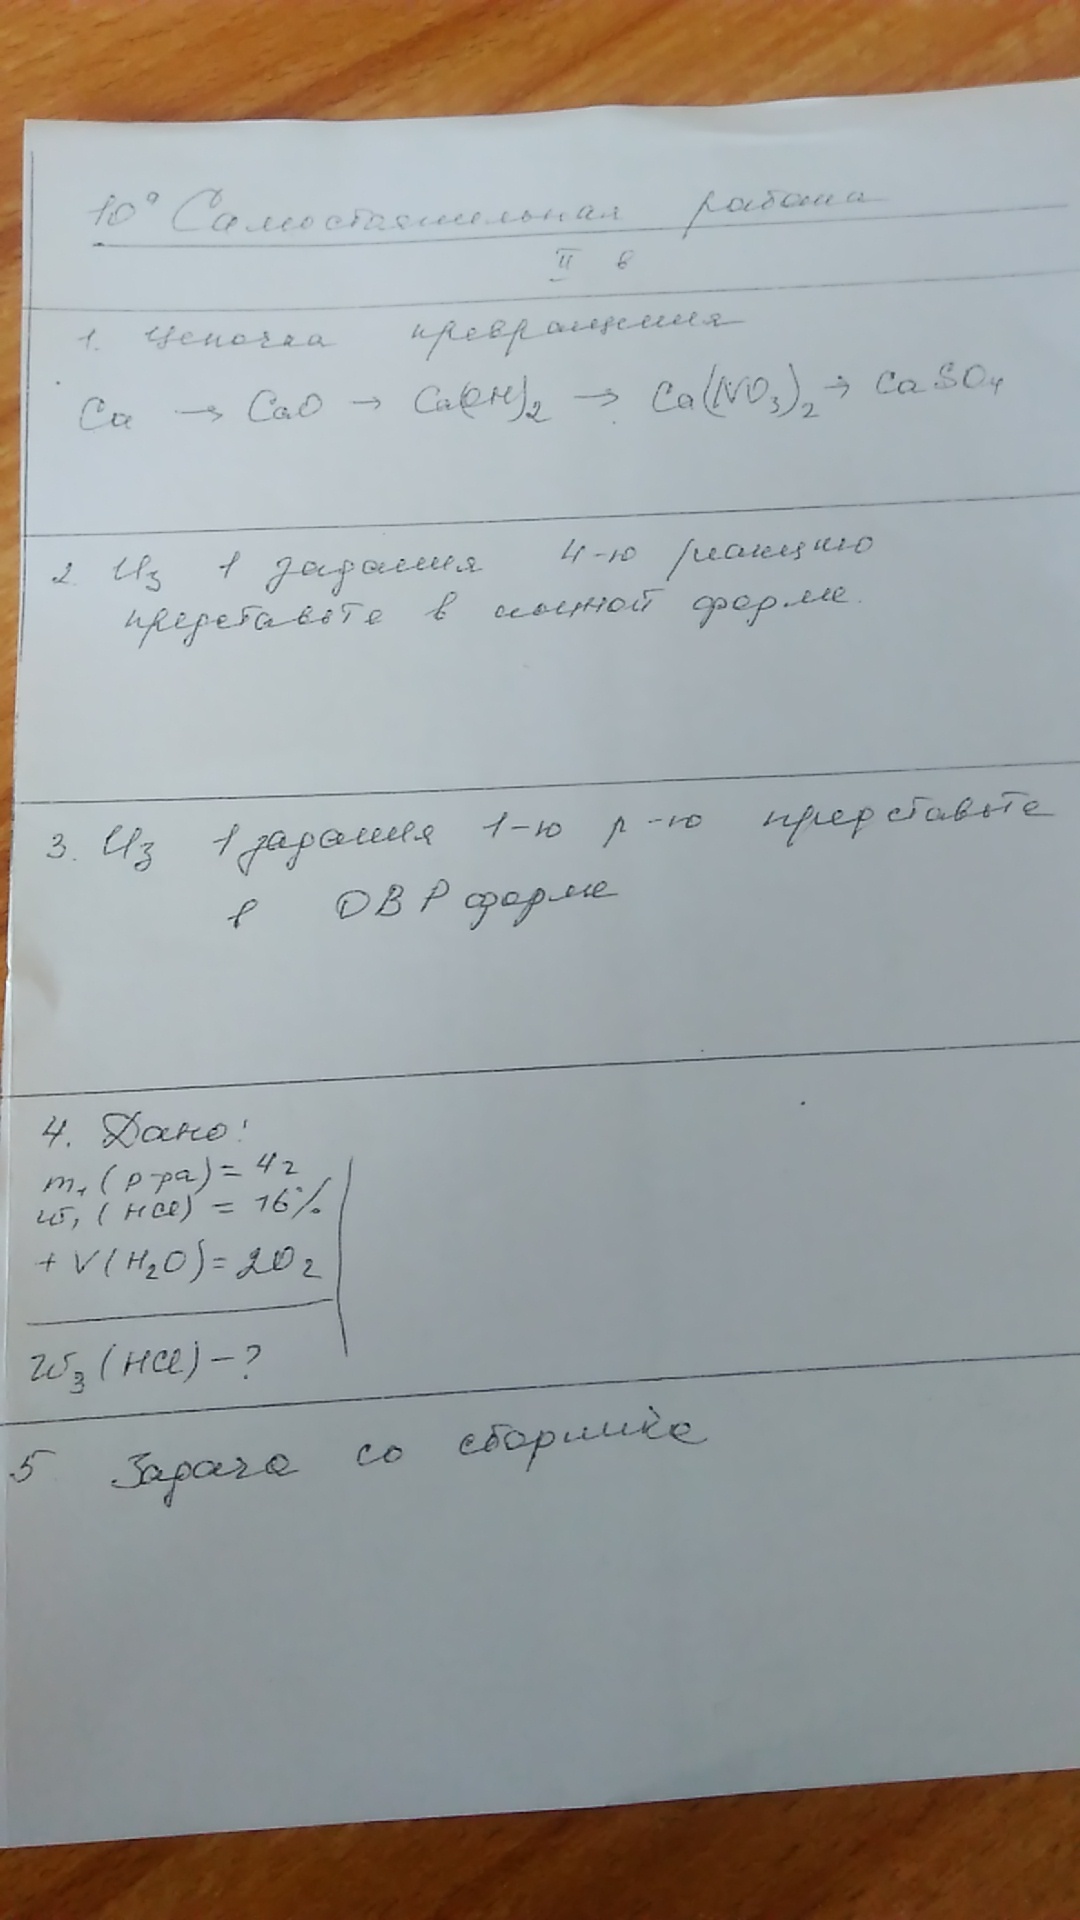 10° Самостоятельная работа
II в
1. Цепочка превращения
Ca → CaO → Ca(OH)₂ → Ca(NO₃)₂ → CaSO₄
2 Из 1 задания 4-ю реакцию
представьте в ионной форме.
3. Из 1 задания 1-ю р-ю представьте
в ОВР форме
4. Дано:
m₁(р-ра) = 4г
w₁(HCl) = 16%
+ V(H₂O) = 20г
w₃(HCl) - ?
5 Задача со сборника